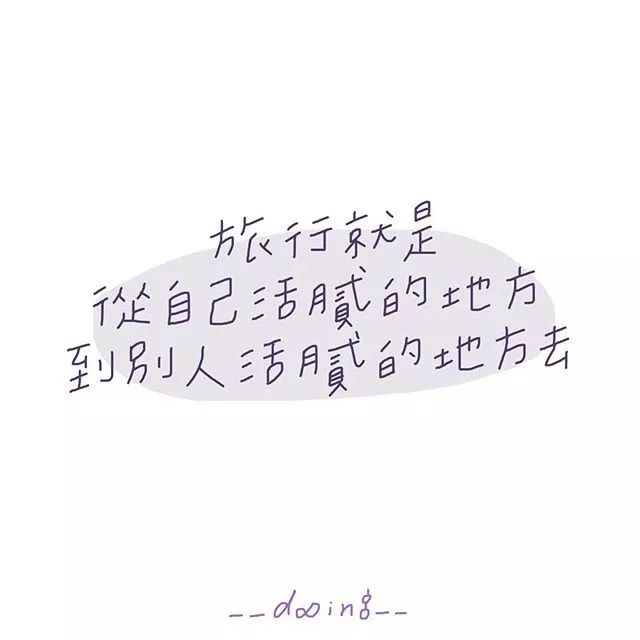 旅行就是
從自己活膩的地方
到別人活膩的地方去
__dooing__